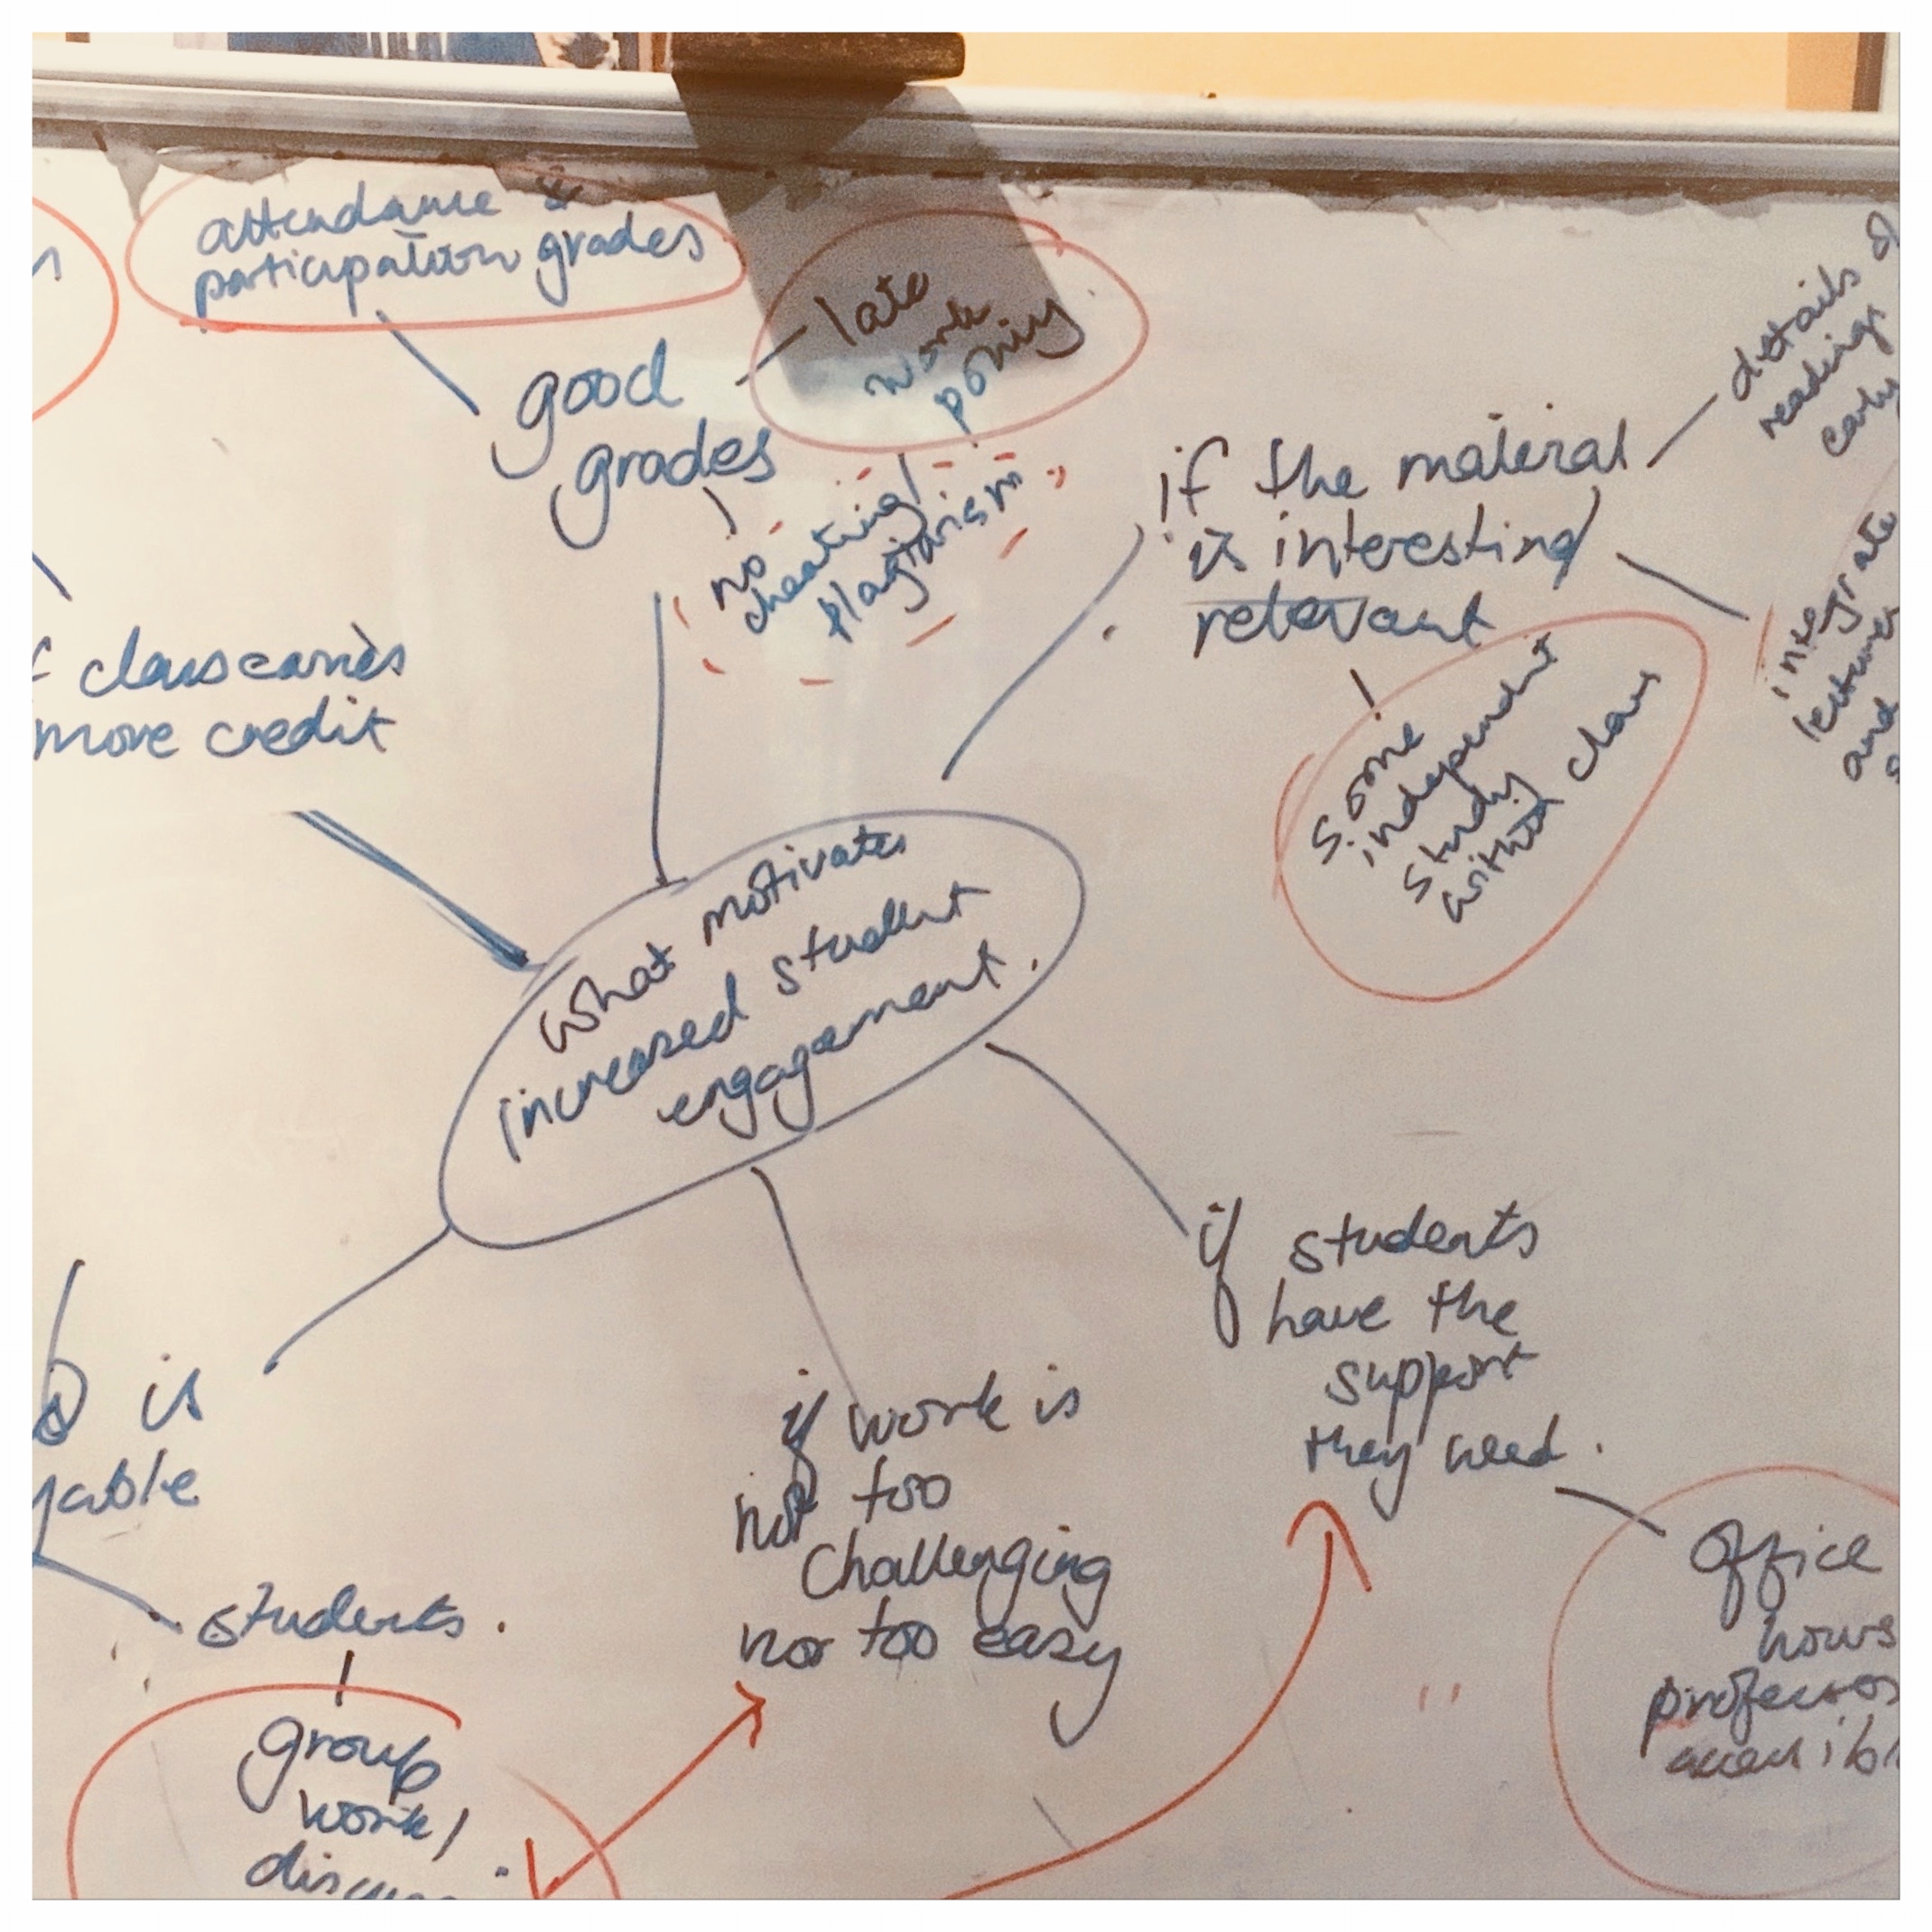 attendance &
participation grades
good
grades
late
work
policy
no
cheating/
plagiarism
if the material
is interesting/
relevant
details of
reading
early
integrate
lectures
and
some
independent
study
within class
class carries
more credit
What motivates
increased student
engagement.
is
yable
students.
group
work/
discuss
if work is
not too
challenging
nor too easy
if students
have the
support
they need.
office
hours
professor